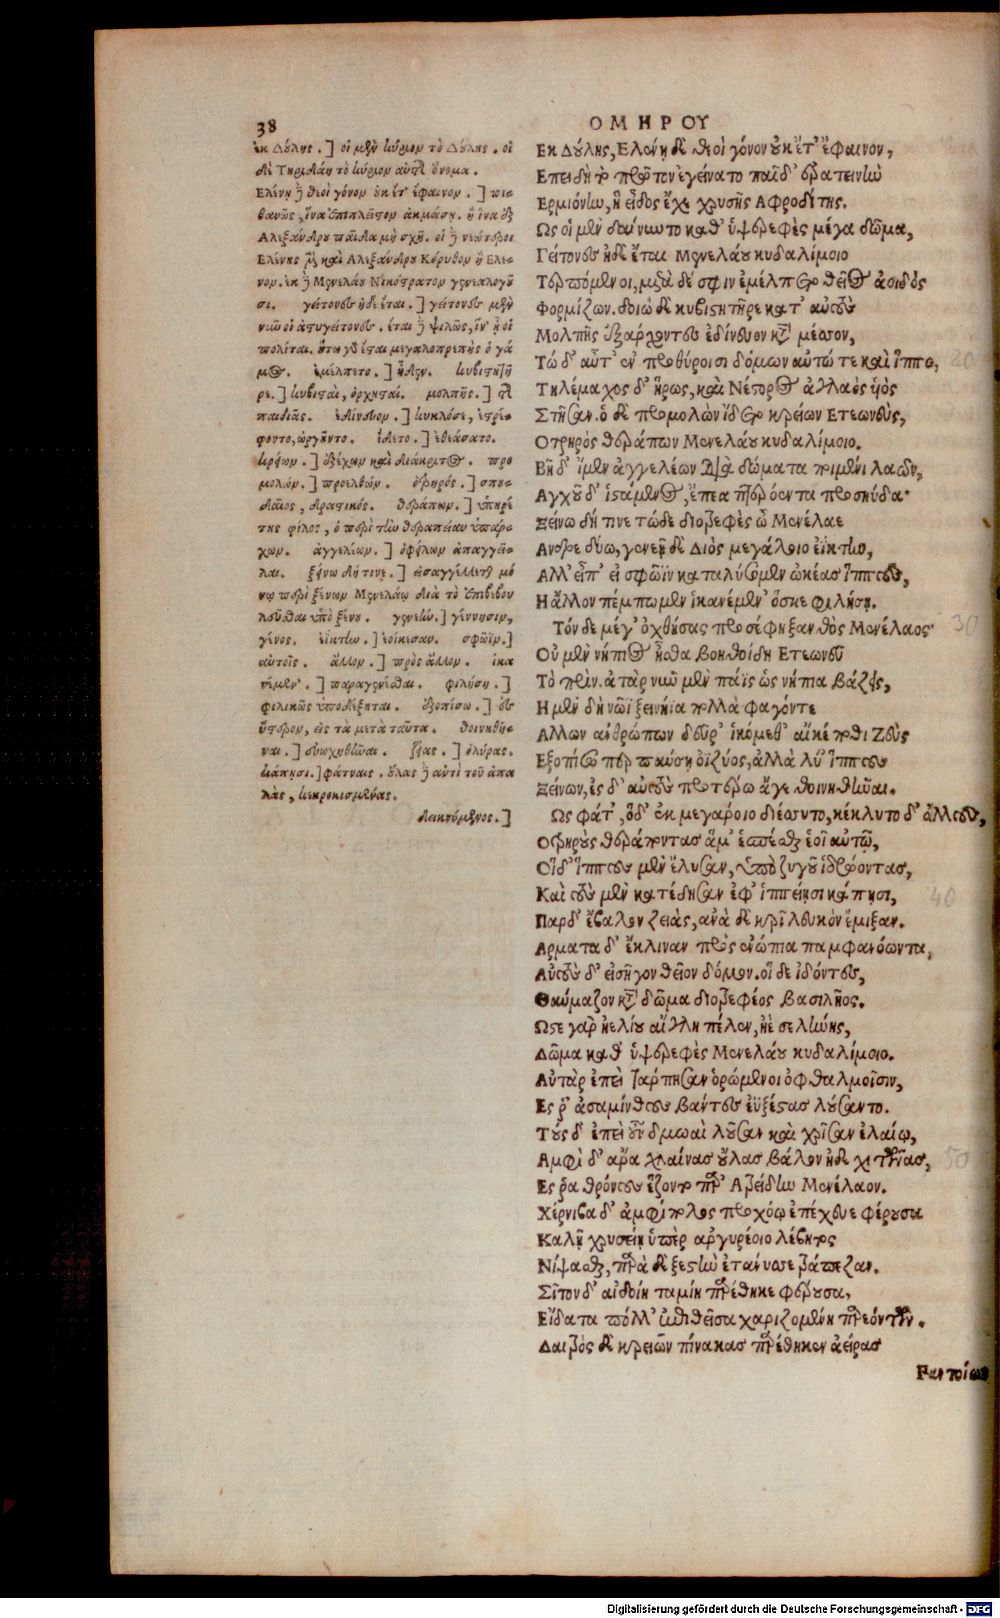 38
ΟΜΗΡΟΥ
ἐκ Δούλης.] οἱ μὲν κύριον τὸ Δούλης. οἱ
δὲ Τηριδάη τὸ κύριον αὐτῆς ὄνομα.
Ελένῃ ἢ θεοὶ γόνον οὐκ ἔτ' ἔφαινον.] πι-
θανῶς, ἵνα ἐπιπλεῖστον ἀκμάσῃ. ἢ ἵνα ἐξ
Αλεξάνδρου παῖδα μὴ σχῇ. οἱ δὲ νεώτεροι
Ελένης καὶ Αλεξάνδρου Κόρυθον ἢ Ελε-
νον. ἐκ δὲ Μενελάου Νικόστρατον γενεαλογοῦ-
σι. γείτονες ἠδὲ ἔται.] γείτονες μὲν
νῦν οἱ ἀστυγείτονες. ἔται δὲ ψιλῶς, ἵν' ᾖ οἱ
πολίται. ὅτω γὰρ ἔσται μεγαλοπρεπὴς ὁ γά-
μος. ἐμέλπετο.] ᾖδεν. κυβιστητῆ-
ρε.] κυβισταὶ, ὀρχησταί. μολπῆς.] τῆς
παιδιᾶς. ἐδίνευον.] κυκλόσε, ἐστρέ-
φοντο, ὠρχοῦντο. ἴδετο.] ἐθεάσατο.
κρείων.] ἐξέχων καὶ διάκριτος. προ
μολών.] προελθών. ὀτρηρός.] σπου-
δαῖος, δραστικός. θεράπων.] ὑπηρέ-
της φίλος, ὁ περὶ τὴν θεραπείαν ὑπάρ-
χων. ἀγγελέων.] ὀφείλων ἀπαγγεῖ-
λαι. ξείνω δή τινε.] εἰσαγγέλλεται μό
νῳ περὶ ξένων Μενελάῳ διὰ τὸ ἐπιβεβου
λεῦσθαι ὑπὸ ξένου. γενεήν.] γέννησιν,
γένος. ἔϊκτην.] ἐοίκεσαν. σφῶϊν.]
αὐτοῖς. ἄλλον.] πρὸς ἄλλον. ἱκα
νέμεν.] παραγενέσθαι. φιλήσῃ.]
φιλικῶς ὑποδέξηται. ἐξοπίσω.] ἐς
ὕστερον, εἰς τὰ μετὰ ταῦτα. θοινηθῆ-
ναι.] εὐωχηθῆναι. ζειάς.] ὀλύρας.
κάπῃσι.] φάτναις. οὔλας δὲ ἀντὶ τοῦ ἁπα
λὰς, κεκροκισμένας.
δεικνύμενος.]
Εκ Δούλης, Ελένῃ δὲ θεοὶ γόνον οὐκ ἔτ' ἔφαινον,
Επειδὴ τὸ πρῶτον ἐγείνατο παῖδ' ἐρατεινὴν
Ερμιόνην, ἣ εἶδος ἔχε χρυσῆς Αφροδίτης.
Ως οἱ μὲν δαίνυντο καθ' ὑψερεφὲς μέγα δῶμα,
Γείτονες ἠδὲ ἔται Μενελάου κυδαλίμοιο
Τερπόμενοι, μετὰ δέ σφιν ἐμέλπετο θεῖος ἀοιδὸς
Φορμίζων. δοιὼ δὲ κυβιστητῆρε κατ' αὐτοὺς
Μολπῆς ἐξάρχοντες ἐδίνευον κατὰ μέσσον,
Τώ δ' αὖτ' ἐν προθύροισι δόμων αὐτώ τε καὶ ἵππω,
Τηλέμαχος δ' ἥρως, καὶ Νέστορος ἀγλαὸς υἱὸς
Στῆσαν. ὁ δὲ προμολὼν ἴδετο κρείων Ετεωνεὺς,
Οτρηρὸς θεράπων Μενελάου κυδαλίμοιο.
Βῆ δ' ἴμεν ἀγγελέων διὰ δώματα ποιμένι λαῶν,
Αγχοῦ δ' ἱστάμενος, ἔπεα πτερόεντα προσηύδα·
Ξείνω δή τινε τώδε διοτρεφὲς ὦ Μενέλαε
Ανδρε δύω, γενεῇ δὲ Διὸς μεγάλοιο ἔϊκτην,
Αλλ' εἴπ' εἰ σφῶϊν καταλύσομεν ὠκέας ἵππους,
Η ἄλλον πέμπωμεν ἱκανέμεν ὅς κε φιλήσῃ.
Τόν δὲ μέγ' ὀχθήσας προσέφη ξανθὸς Μενέλαος·
Οὐ μὲν νήπιος ἦσθα Βοηθοίδη Ετεωνεῦ
Τὸ πρίν. ἀτὰρ νῦν μὲν πάϊς ὣς νήπια βάζεις,
Η μὲν δὴ νῶϊ ξεινήϊα πολλὰ φαγόντε
Αλλων ἀνθρώπων δεῦρ' ἱκόμεθ' αἴ κέ ποθι Ζεὺς
Εξοπίσω περ παύσῃ ὀϊζύος, ἀλλὰ λύ' ἵππους
Ξείνων, ἐς δ' αὐτοὺς προτέρω ἄγε θοινηθῆναι.
Ως φάτ', ὁ δ' ἐκ μεγάροιο διέσσυτο, κέκλυτο δ' ἄλλους,
Οτρηροὺς θεράποντας ἅμ' ἑσπέσθαι ἑοῖ αὐτῷ,
Οἵδ' ἵππους μὲν ἔλυσαν, ὑπὸ ζυγοῦ ἱδρώοντας,
Καὶ τοὺς μὲν κατέδησαν ἐφ' ἱππείῃσι κάπῃσι,
Παρ δ' ἔβαλον ζειὰς, ἀνὰ δὲ κρῖ λευκὸν ἔμιξαν.
Αρματα δ' ἔκλιναν πρὸς ἐνώπια παμφανόωντα,
Αὐτοὺς δ' εἰσῆγον θεῖον δόμον. οἱ δὲ ἰδόντες,
Θαύμαζον κατὰ δῶμα διοτρεφέος βασιλῆος.
Ωστε γὰρ ἠελίου αἴγλη πέλεν, ἠὲ σελήνης,
Δῶμα καθ' ὑψερεφὲς Μενελάου κυδαλίμοιο.
Αὐτὰρ ἐπεὶ τάρπησαν ὁρώμενοι ὀφθαλμοῖσιν,
Ες ῥ' ἀσαμίνθους βάντες ἐϋξέστας λούσαντο.
Τοὺς δ' ἐπεὶ οὖν δμωαὶ λοῦσαν καὶ χρῖσαν ἐλαίῳ,
Αμφὶ δ' ἄρα χλαίνας οὔλας βάλον ἠδὲ χιτῶνας,
Ες ῥα θρόνους ἕζοντο παρ' Ατρείδην Μενέλαον.
Χέρνιβα δ' ἀμφίπολος προχόῳ ἐπέχευε φέρουσα
Καλῇ χρυσείῃ ὑπὲρ ἀργυρέοιο λέβητος
Νίψασθαι, παρὰ δὲ ξεστὴν ἐτάνυσσε τράπεζαν.
Σῖτον δ' αἰδοίη ταμίη παρέθηκε φέρουσα,
Εἴδατα πόλλ' ἐπιθεῖσα χαριζομένη παρεόντων.
Δαιτρὸς δὲ κρειῶν πίνακας παρέθηκεν ἀείρας
Παντοίων
20
30
40
50
Digitalisierung gefördert durch die Deutsche Forschungsgemeinschaft - DFG